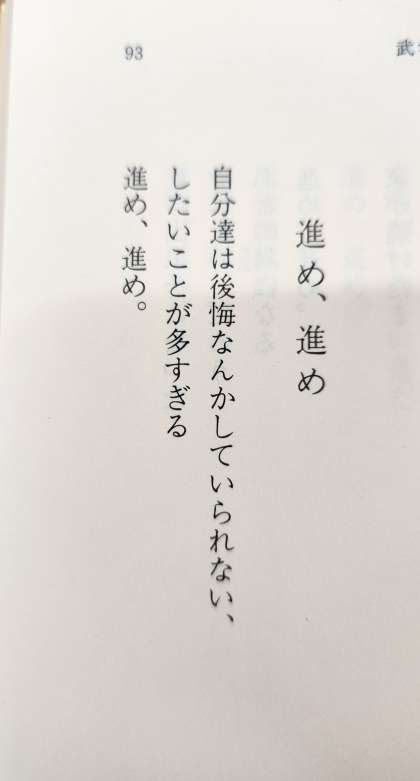 93
武
進め、進め
自分達は後悔なんかしていられない、
したいことが多すぎる
進め、進め。